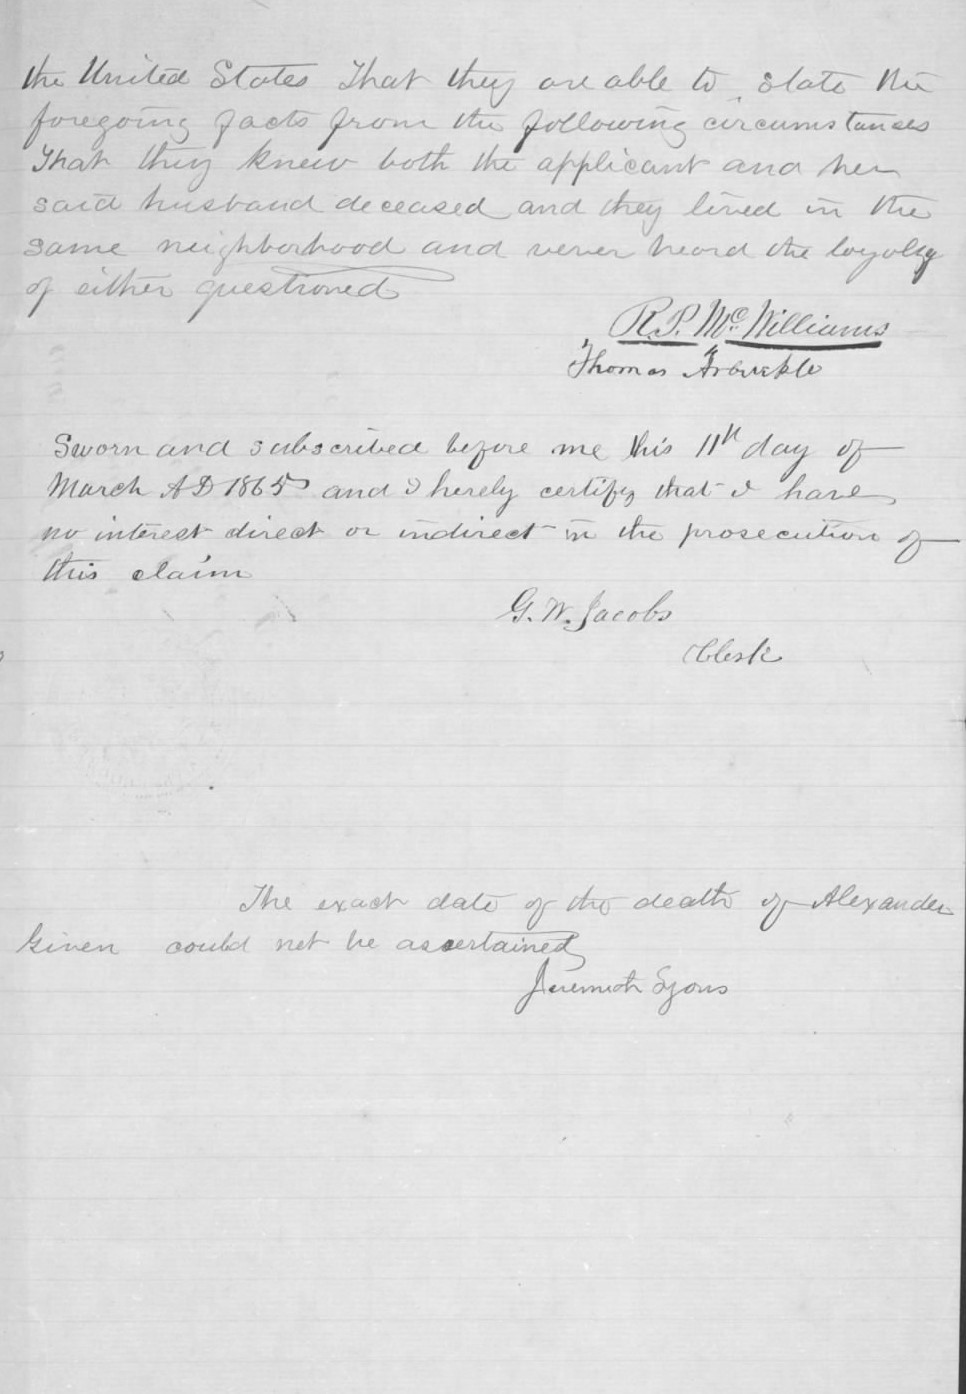 the United States That they are able to state the
foregoing facts from the following circumstances
That they knew both the applicant and her
said husband deceased and they lived in the
same neighborhood and never heard the loyolty
of either questioned
R. P. McWilliams
Thomas Arbuckle
Sworn and subscribed before me this 11th day of
March AD 1865 and I hereby certify that I have
no interest direct or indirect in the prosecution of
this claim
G. W. Jacobs
Clerk
The exact date of the death of Alexander
Given could not be ascertained
Jeremiah Lyons